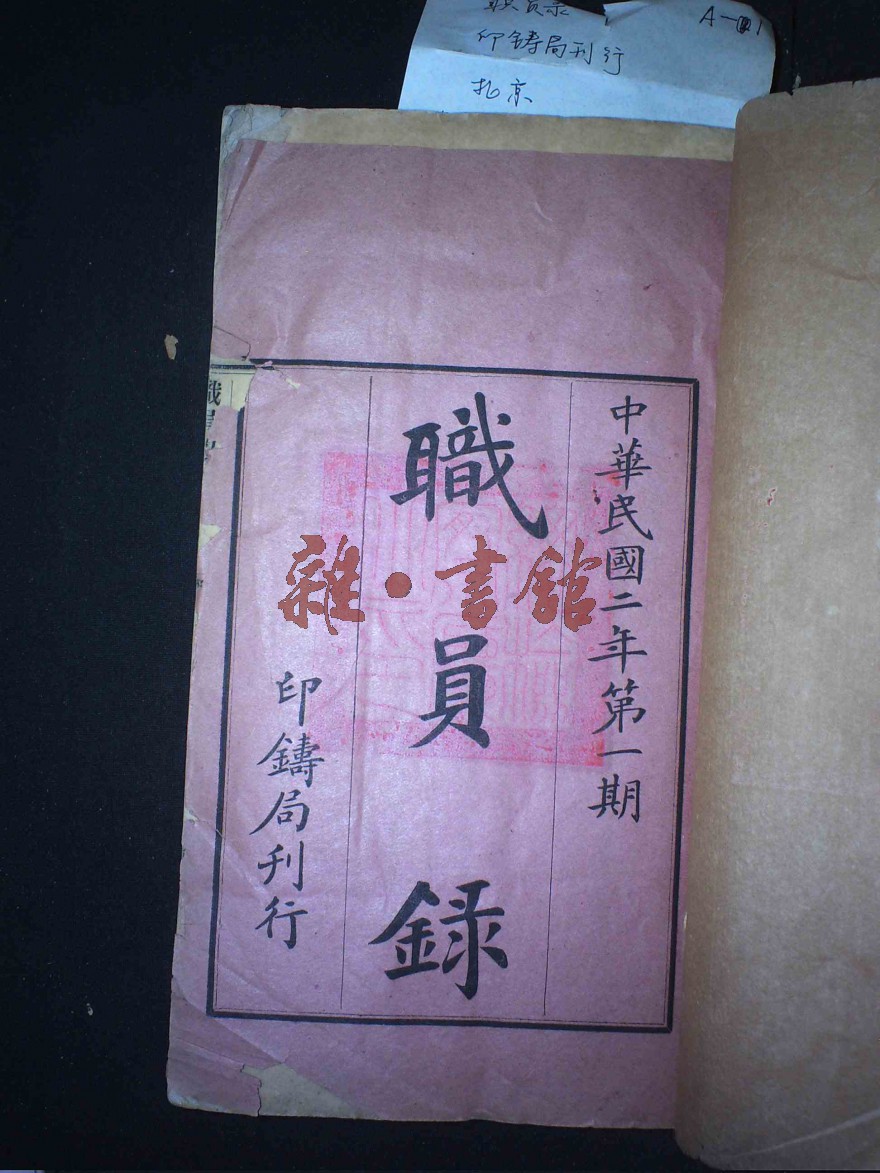 职员录
A-
印铸局刊行
北京
中華民國二年第一期
職員錄
印鑄局刊行
雜·書館
職員